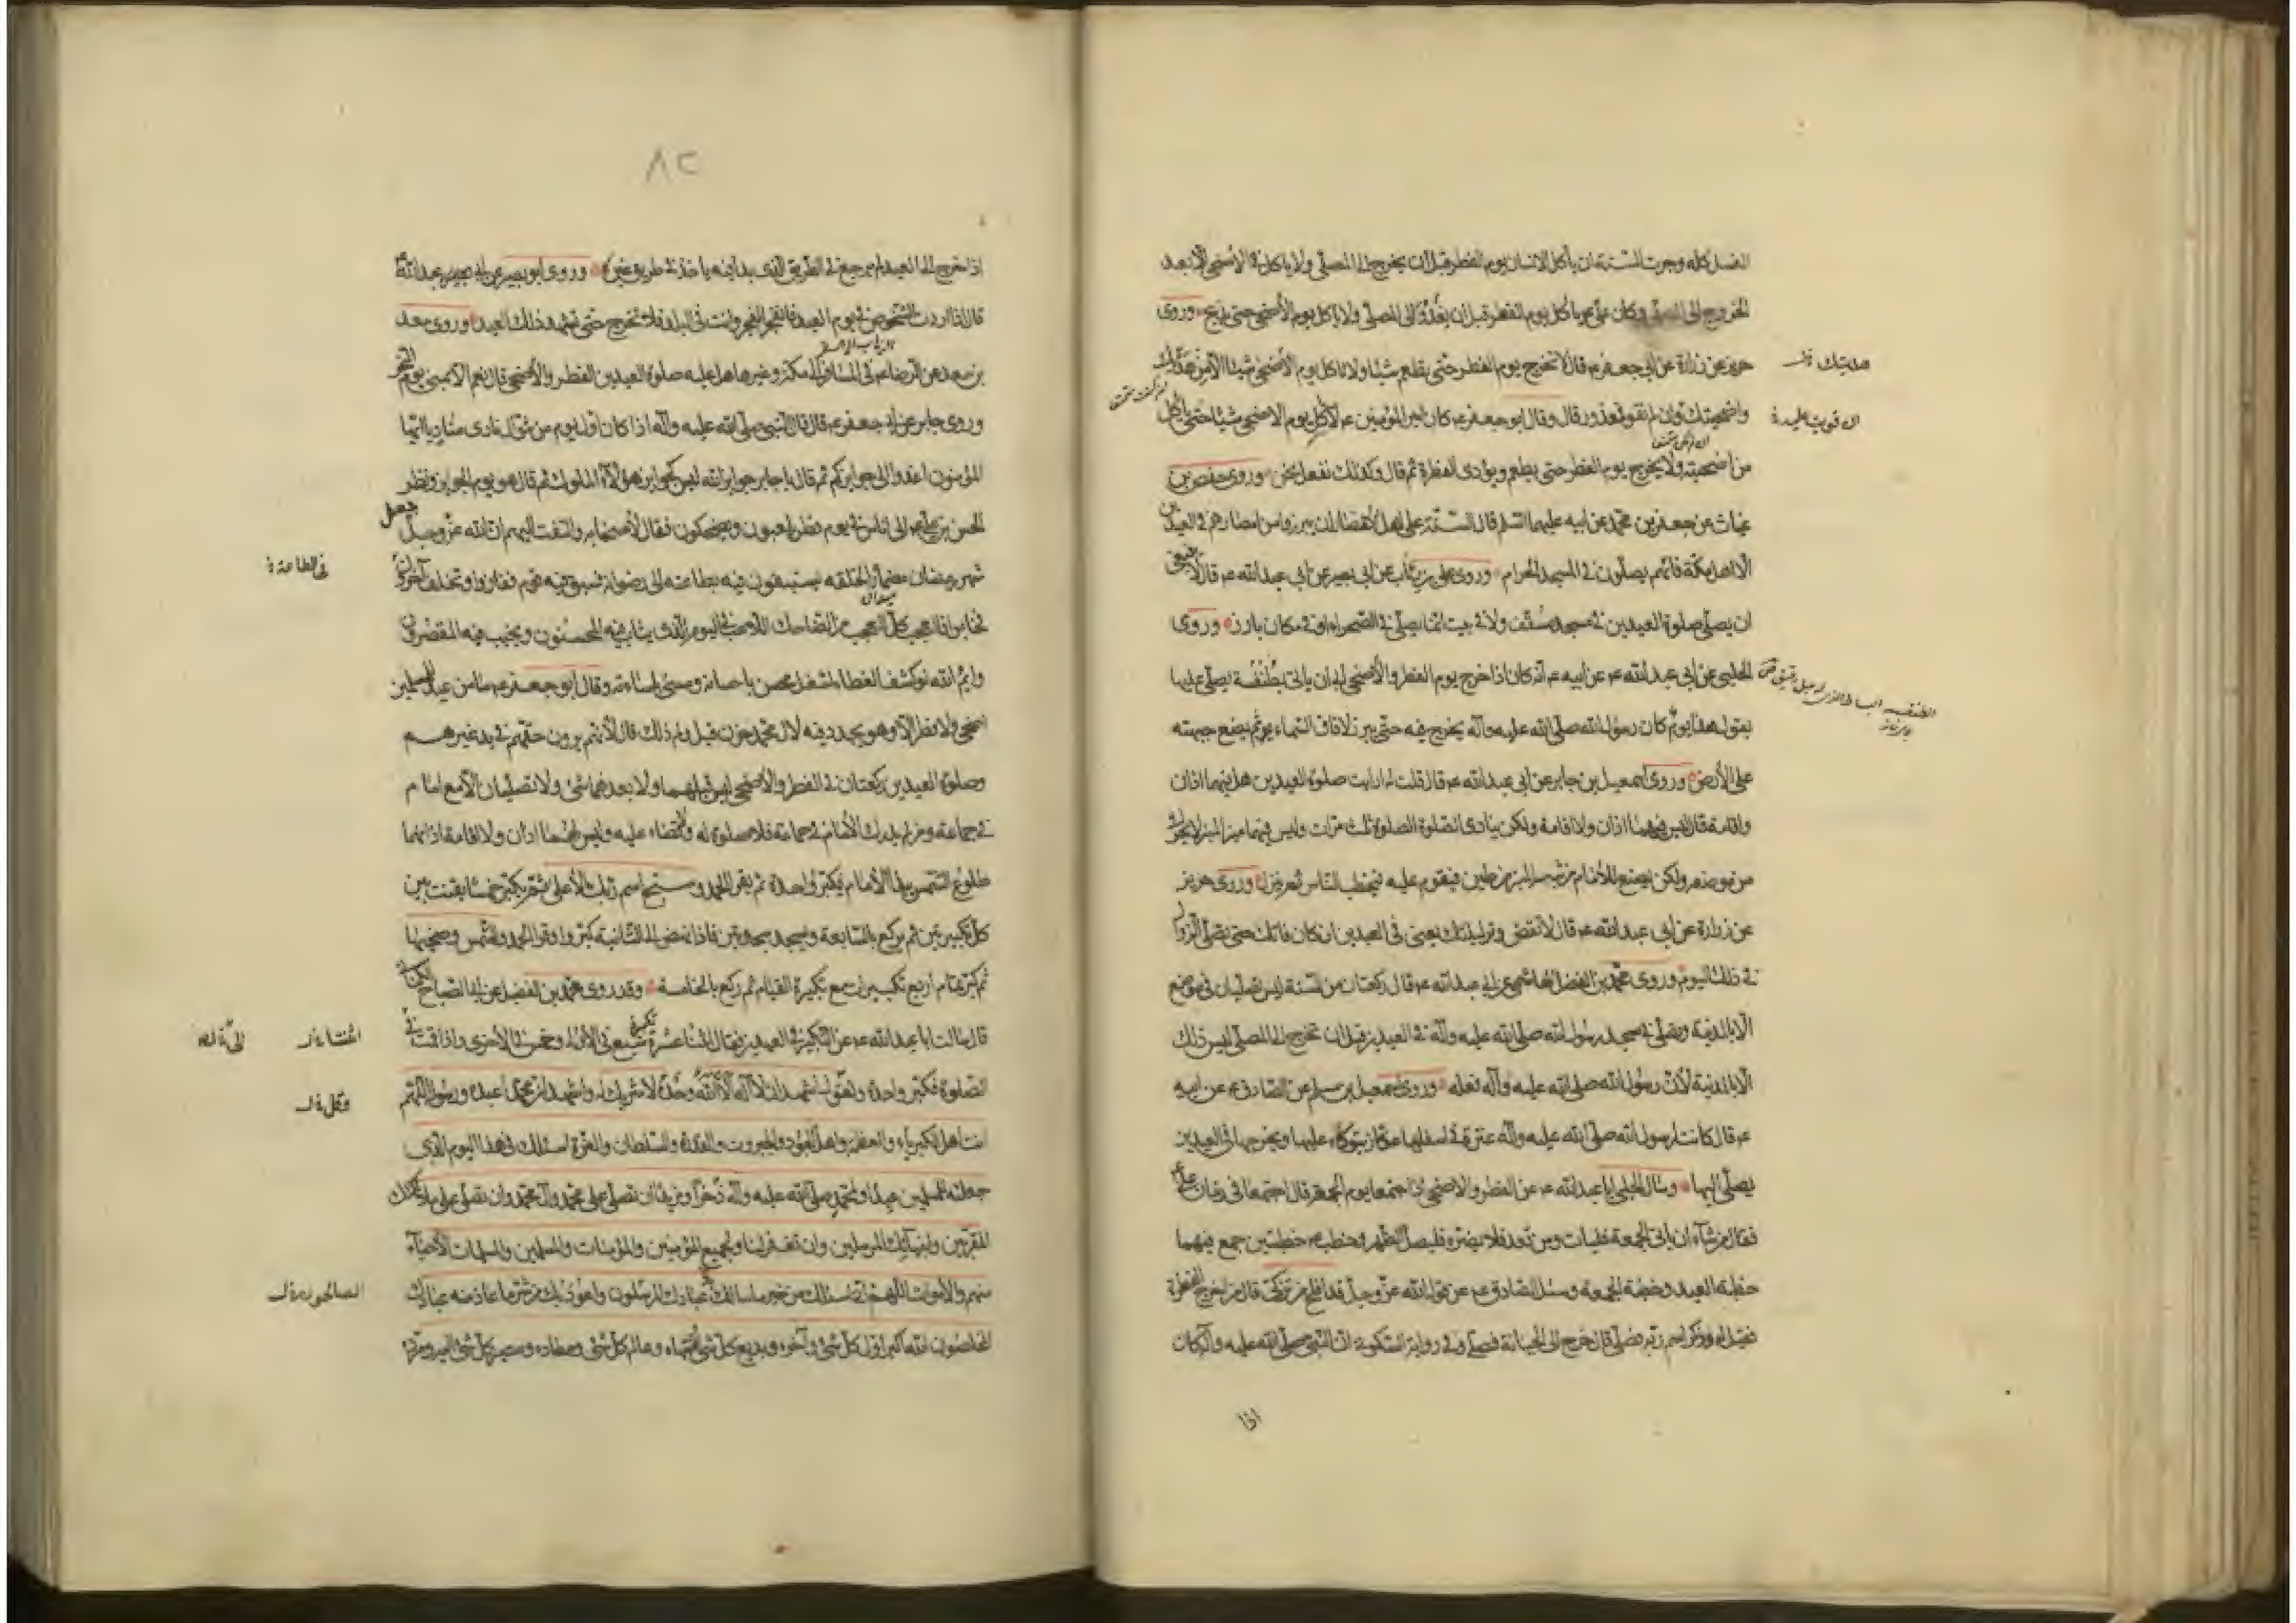 الغسل كله وجرت السنة ان يأكل الانسان يوم الفطر قبل ان يخرج الى المصلى ولا ياكل في الاضحى الا بعد
الخروج الى المصلى وكان على ع يأكل يوم الفطر قبل ان يغدو الى المصلى ولا ياكل يوم الأضحى حتى يذبح وروى
حريز عن زرارة عن ابى جعفر ع قال لا تخرج يوم الفطر حتى تطعم شيئا ولا تاكل يوم الأضحى شيئا الا من هديك
واضحيتك وان لم تقو فمعذور قال وقال ابو جعفر ع كان امير المؤمنين ع لا ياكل يوم الاضحى شيئا حتى يأكل
من اضحيته ولا يخرج يوم الفطر حتى يطعم ويؤدى الفطرة ثم قال وكذلك نفعل نحن وروى حفص بن
غياث عن جعفر بن محمد عن ابيه عليهما السلم قال السنة على اهل الأمصار ان يبرزوا من امصارهم في العيدين
الا اهل مكة فانهم يصلون في المسجد الحرام وروى على بن رئاب عن ابى بصير عن ابى عبد الله ع قال لا ينبغى
ان يصلى صلوة العيدين في مسجد مسقف ولا في بيت انما يصلى في الصحراء او في مكان بارز وروى
الحلبى عن ابى عبد الله ع عن ابيه ع انه كان اذا خرج يوم الفطر والأضحى ابى ان يأتى بطنفسة يصلى عليها
يقول هذا يوم كان رسول الله صلى الله عليه وآله يخرج فيه حتى يبرز لآفاق السماء ثم يضع جبهته
على الأرض وروى اسمعيل بن جابر عن ابى عبد الله ع قال قلت له ارايت صلوة العيدين هل فيهما اذان
واقامة قال ليس فيهما اذان ولا اقامة ولكن ينادى الصلوة الصلوة ثلث مرات وليس فيهما منبر المنبر لا يحول
من موضعه ولكن يصنع للامام شبه المنبر من طين فيقوم عليه فيخطب الناس ثم ينزل وروى حريز
عن زرارة عن ابى عبد الله ع قال لا تقض وتر ليلتك يعنى في العيدين ان كان فاتك حتى تصلى الزوال
في ذلك اليوم وروى محمد بن الفضل الهاشمى عن ابى عبد الله ع قال ركعتان من السنة ليس تصليان في موضع
الا بالمدينة وتصلى في مسجد رسول الله صلى الله عليه وآله في العيد قبل ان تخرج الى المصلى ليس ذلك
الا بالمدينة لأن رسول الله صلى الله عليه وآله فعله وروى اسمعيل بن مسلم عن الصادق ع عن ابيه
ع قال كانت لرسول الله صلى الله عليه وآله عنزة في اسفلها عكاز يتوكاء عليها ويخرجها في العيدين
يصلى اليها وسال الحلبى ابا عبد الله ع عن الفطر والاضحى اذا اجتمعا يوم الجمعة قال اجتمعا في زمان على ع
فقال من شآء ان ياتى الجمعة فليات ومن قعد فلا يضره فليصل الظهر وخطب ع خطبتين جمع فيهما
خطبة العيد وخطبة الجمعة وسئل الصادق ع عن قول الله عز وجل قد افلح من تزكى قال من اخرج الفطرة
فقيل له وذكر اسم ربه فصلى قال خرج الى الجبانة فصلى وفي رواية السكونى ان النبى صلى الله عليه وآله كان
اذا
ان قويت عليه
٨٢
اذا خرج الى العيد لم يرجع في الطريق الذى بدا فيه ياخذ في طريق غيره وروى ابو بصير عن ابى عبد الله ع
قال اذا اردت الشخوص في يوم العيد فانفجر الفجر وانت في البلد فلا تخرج حتى تشهد ذلك العيد وروى سعد
بن سعد عن الرضا ع في المسافر الى مكة وغيرها هل عليه صلوة العيدين الفطر والأضحى قال نعم الا بمنى يوم النحر
وروى جابر عن ابى جعفر ع قال قال النبى صلى الله عليه وآله اذا كان اول يوم من شوال نادى مناد يا ايها
المؤمنون اغدوا الى جوايزكم ثم قال يا جابر جوايز الله ليس كجوايز هؤلآء الملوك ثم قال هو يوم الجوايز ونظر
الحسن بن على ع الى اناس في يوم فطر يلعبون ويضحكون فقال لأصحابه والتفت اليهم ان الله عز وجل جعل
شهر رمضان مضمارا لخلقه يستبقون فيه بطاعته الى رضوانه فسبق فيه قوم ففازوا وتخلف آخرون
فخابوا فالعجب كل العجب من الضاحك اللاعب في اليوم الذى يثاب فيه المحسنون ويخيب فيه المقصرون
وايم الله لو كشف الغطا لشغل محسن باحسانه ومسىء باساءته وقال ابو جعفر ع ما من عيد للمسلمين
اضحى ولا فطر الا وهو يجدد فيه لآل محمد حزن قيل ولم ذلك قال لأنهم يرون حقهم في يد غيرهم
وصلوة العيدين ركعتان في الفطر والأضحى ليس قبلهما ولا بعدهما شئ ولا تصليان الا مع امام
في جماعة ومن لم يدرك الأمام في جماعة فلا صلوة له ولا قضاء عليه وليس لهما اذان ولا اقامة اذانهما
طلوع الشمس يبدأ الأمام فيكبر واحدة ثم يقرا الحمد وسبح اسم ربك الأعلى ثم يكبر خمسا يقنت بين
كل تكبيرتين ثم يركع بالسابعة ويسجد سجدتين فاذا نهض الى الثانية كبر وقرا الحمد والشمس وضحيها
ثم كبر تمام اربع تكبيرات مع تكبيرة القيام ثم ركع بالخامسة وقد روى محمد بن الفضيل عن ابى الصباح الكنانى
قال سالت ابا عبد الله ع عن التكبير في العيدين فقال اثنتا عشرة تكبيرة سبع في الأولى وخمس في الأخرى واذا قمت في
الصلوة فكبر واحدة وتقول اشهد ان لا آله الا الله وحده لا شريك له واشهد ان محمدا عبده ورسوله اللهم
انت اهل الكبرياء والعظمة واهل الجود والجبروت والقدرة والسلطان والعزة اسئلك في هذا اليوم الذى
جعلته للمسلمين عيدا ولمحمد صلى الله عليه وآله ذخرا ومزيدا ان تصلى على محمد وآل محمد وان تصلى على ملائكتك
المقربين وانبيائك المرسلين وان تغفر لنا ولجميع المؤمنين والمؤمنات والمسلمين والمسلمات الأحيآء
منهم والأموات اللهم انى اسئلك من خير ما سالك عبادك المرسلون واعوذ بك من شر ما عاذ منه عبادك
المخلصون الله اكبر اول كل شئ وآخره وبديع كل شئ ومنتهاه وعالم كل شئ ومعاده ومصير كل شئ اليه ومرده
في الطاعة